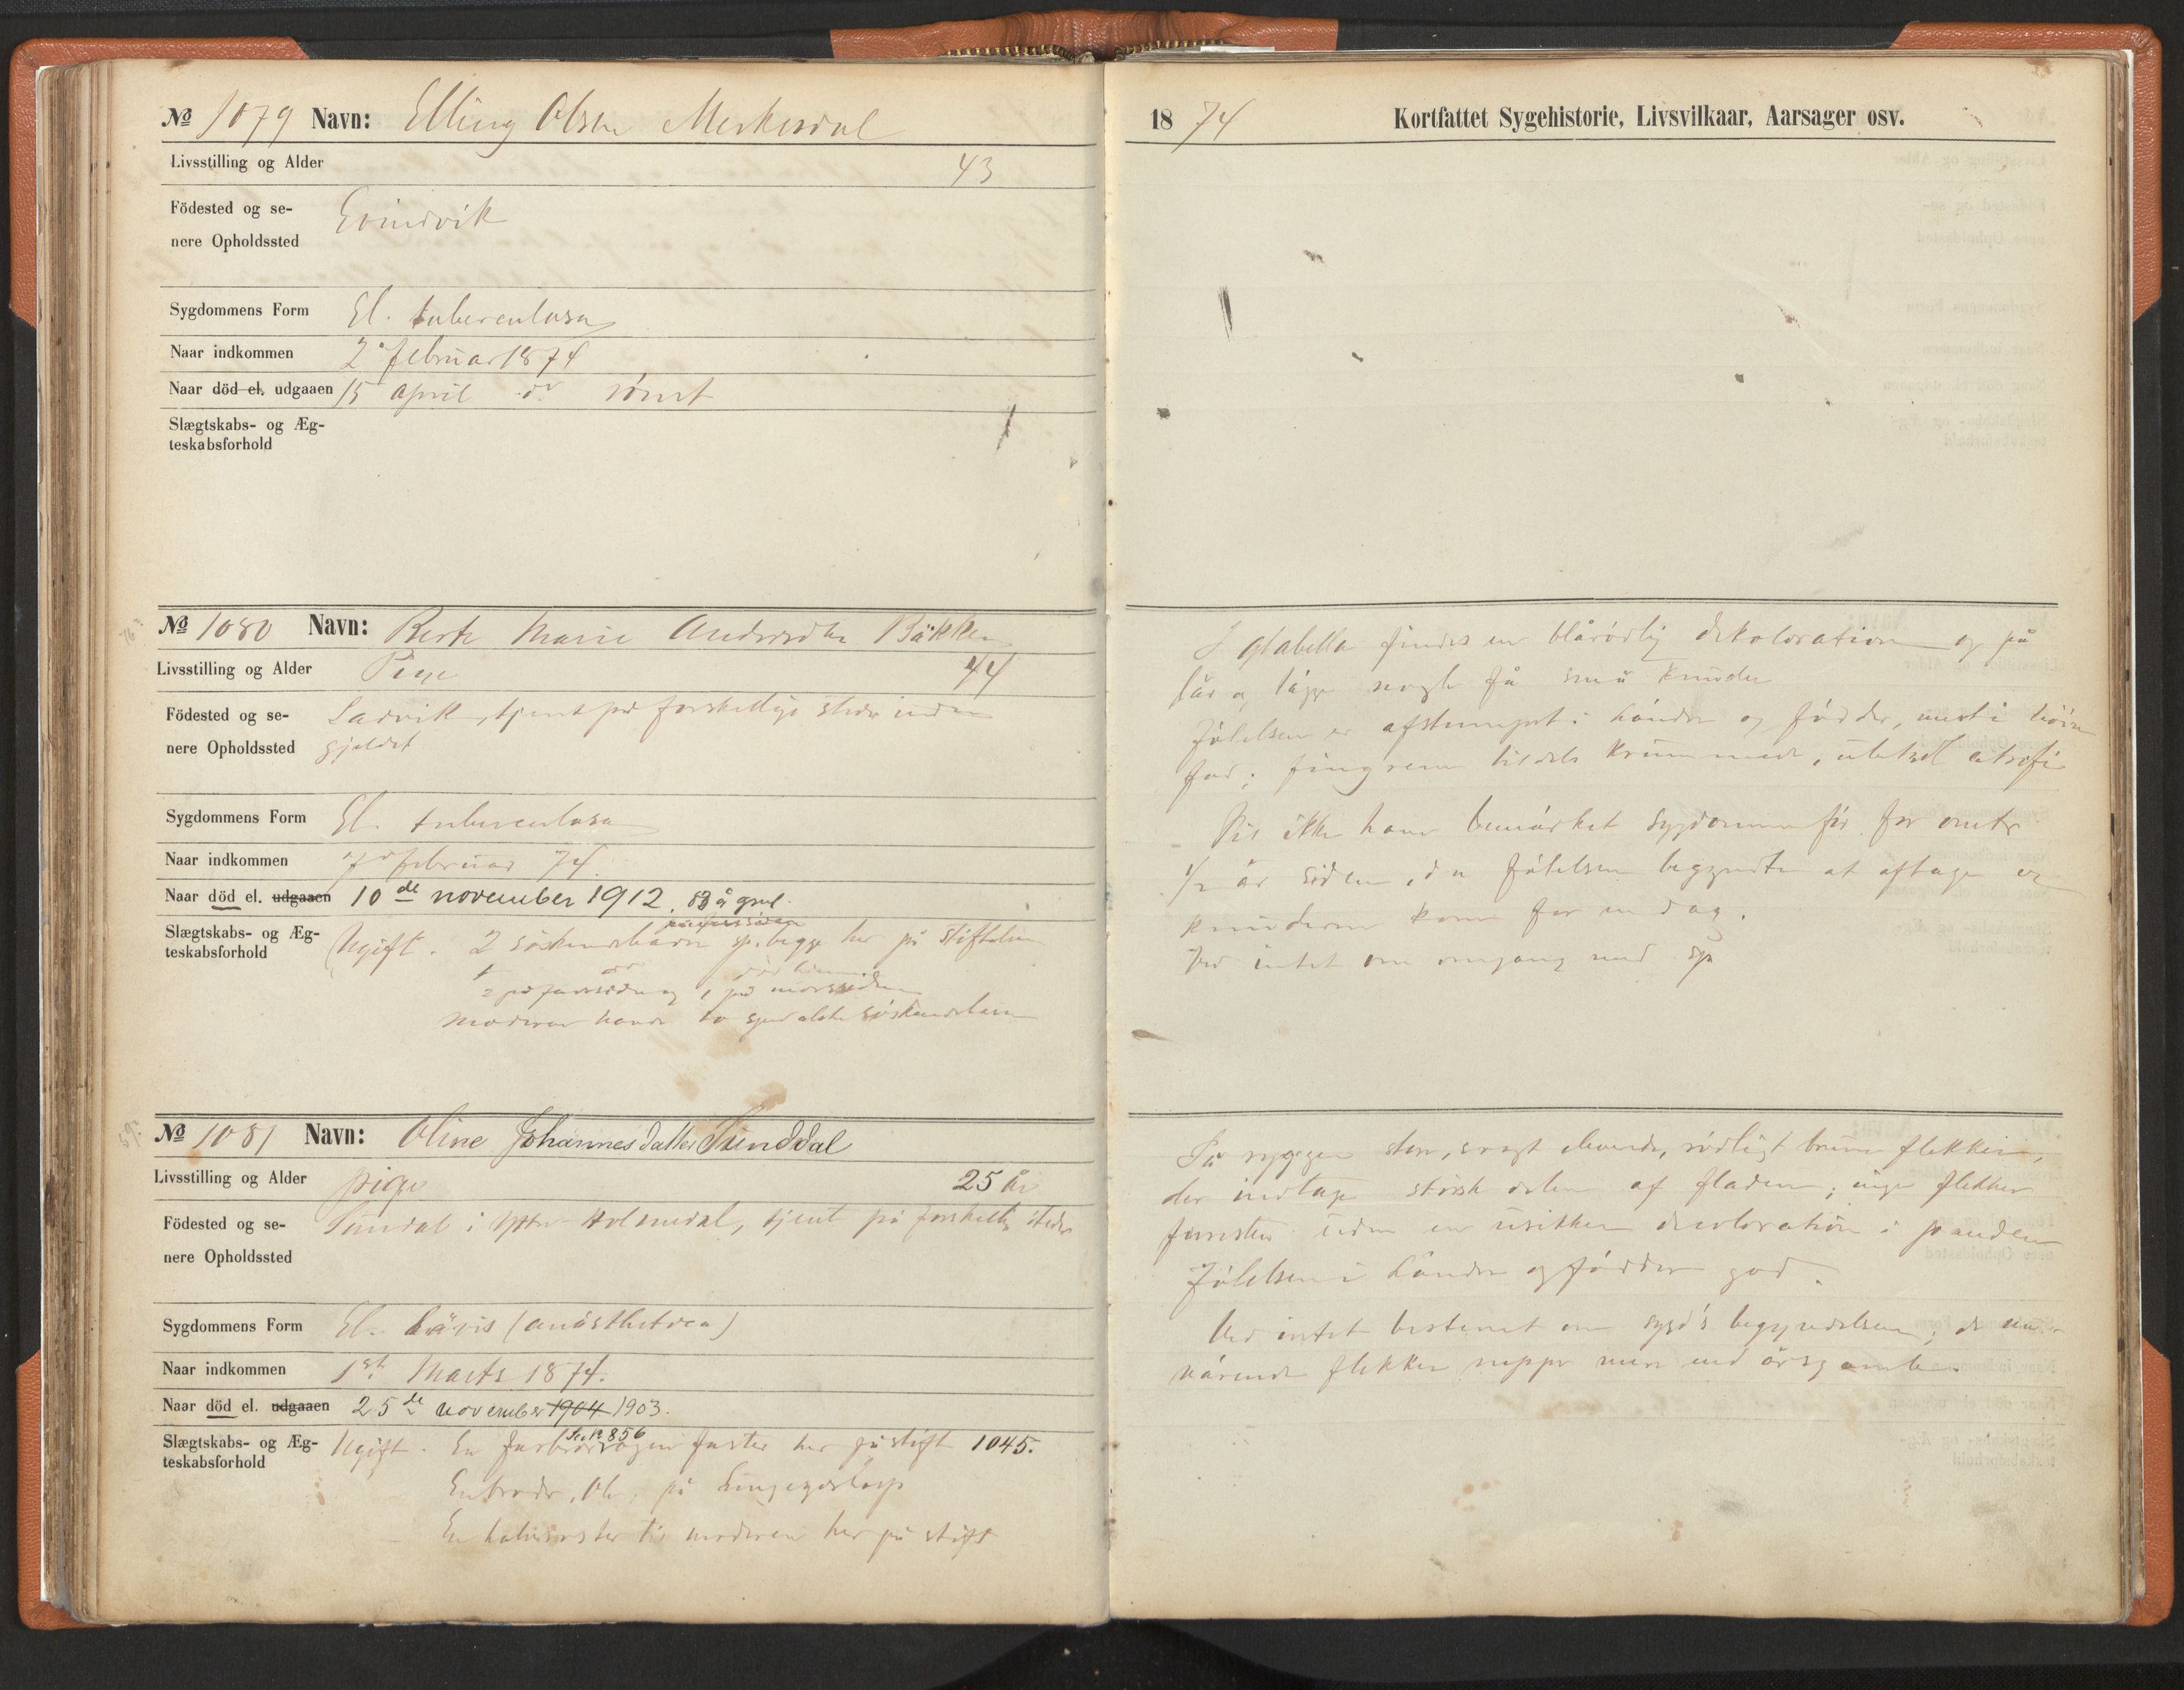 № 1079 Navn: Elling Olsen Merkesdal
Livsstilling og Alder 43
Födested og se-
nere Opholdssted Evindvik
Sygdommens Form El. tuberculosa
Naar indkommen 2 februar 1874
Naar död el. udgaaen 15 april do römt
Slægtskabs- og Æg-
teskabsforhold
№ 1080 Navn: Berte Marie Andersdtr Bäkken
Livsstilling og Alder Pige 44
Födested og se- Ladvik, tjent på forskellige steder inden
nere Opholdssted gjeldet
Sygdommens Form El. tuberculosa
Naar indkommen 7 februar 74.
Naar död el. udgaaen 10de november 1912. 83 å gml.
på farssiden
Slægtskabs- og Æg- Ugift. 2 söskendebarn sp. begge her på stiftelsen
teskabsforhold
2 på farssiden og 1 på morssiden
Moderen havde to spedalske söskendebarn
№ 1081 Navn: Oline Johannesdatter Sunddal
Livsstilling og Alder pige 25 år
Födested og se- Sundal i Yttre Holmedal, tjent på forskellige steder
nere Opholdssted
Sygdommens Form El. lävis (anästhetica)
Naar indkommen 1st Marts 1874.
Naar död el. udgaaen 25de november 1904 1903.
856
Slægtskabs- og Æg- Ugift. En farbror og en faster her på stift 1045.
teskabsforhold
En broder, Ole, på Lungegårdshosp
En halvsöster til moderen her på stift
1874 Kortfattet Sygehistorie, Livsvilkaar, Aarsager osv.
I glabella findes en blårödlig dekoloration og på
lår og lägge nogle få små knuder
Fölelsen er afstumpet i händer og födder, mest i höire
fod; fingrene tildels krummede, ubetyd. atrofi
Vil ikke have bemärket sygdommen för for omtr
1/2 år siden, da fölelsen begyndte at aftage og
knuderne kom for en dag.
Ved intet om omgang med sp
På ryggen store, svagt eleverede, rödligt brune flekker,
der indtage störste delen af fladen; ingen flekker
forresten uden en usikker decoloration i panden
Fölelsen i händer og födder god.
Ved intet bestemt om sygd's begyndelse; de nu-
värende flekker neppe mere end årsgamle.